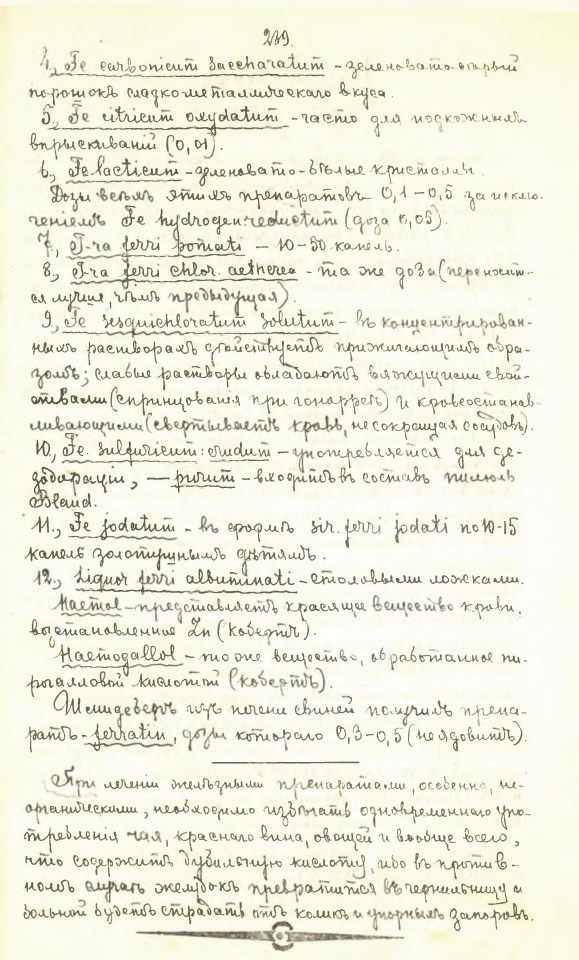 239.
4., Fe carbonicum saccharatum - зеленовато-сѣрый
порошокъ сладко-металлическаго вкуса.
5., Fe citricum oxydatum - часто для подкожныхъ
впрыскиваній (0,01).
6., Fe lacticum - зеленовато-бѣлые кристаллы.
Дозы всѣхъ этихъ препаратовъ 0,1-0,5 за исклю-
ченіемъ Fe hydrogen: reductum (доза 0,05).
7., T-ra ferri pomati - 10-30 капель.
8., T-ra ferri chlor. aetherea - та же доза (переносит-
ся лучше, чѣмъ предыдущая).
9., Fe sesquichloratum solutum - въ концентрирован-
ныхъ растворахъ дѣйствуетъ прижигающимъ обра-
зомъ; слабые растворы обладаютъ вяжущими свой-
ствами (спринцованія при гонорреѣ) и кровеостанав-
ливающими (свертываетъ кровь, не сокращая сосудовъ).
10., Fe. sulfuricum: crudum - употребляется для де-
зодораціи, — purum - входитъ въ составъ пилюль
Bland.
11., Fe jodatum - въ формѣ sir. ferri jodati по 10-15
капель золотушнымъ дѣтямъ.
12., Liquor ferri albuminati - столовыми ложками.
Haemol - представляетъ красящее вещество крови,
возстановленное Zn (Кобертъ).
Haemogallol - то же вещество, обработанное пи-
рогалловой кислотой (Кобертъ).
Шмидебергъ изъ печени свиней получилъ препа-
ратъ - ferratin, дозы котораго 0,3-0,5 (не ядовитъ).
При леченіи желѣзными препаратами, особенно, не-
органическими, необходимо избѣгать одновременнаго упо-
требленія чая, краснаго вина, овощей и вообще всего,
что содержитъ дубильную кислоту, ибо въ против-
номъ случаѣ желудокъ превратится въ чернильницу и
больной будетъ страдать отъ коликъ и упорныхъ запоровъ.